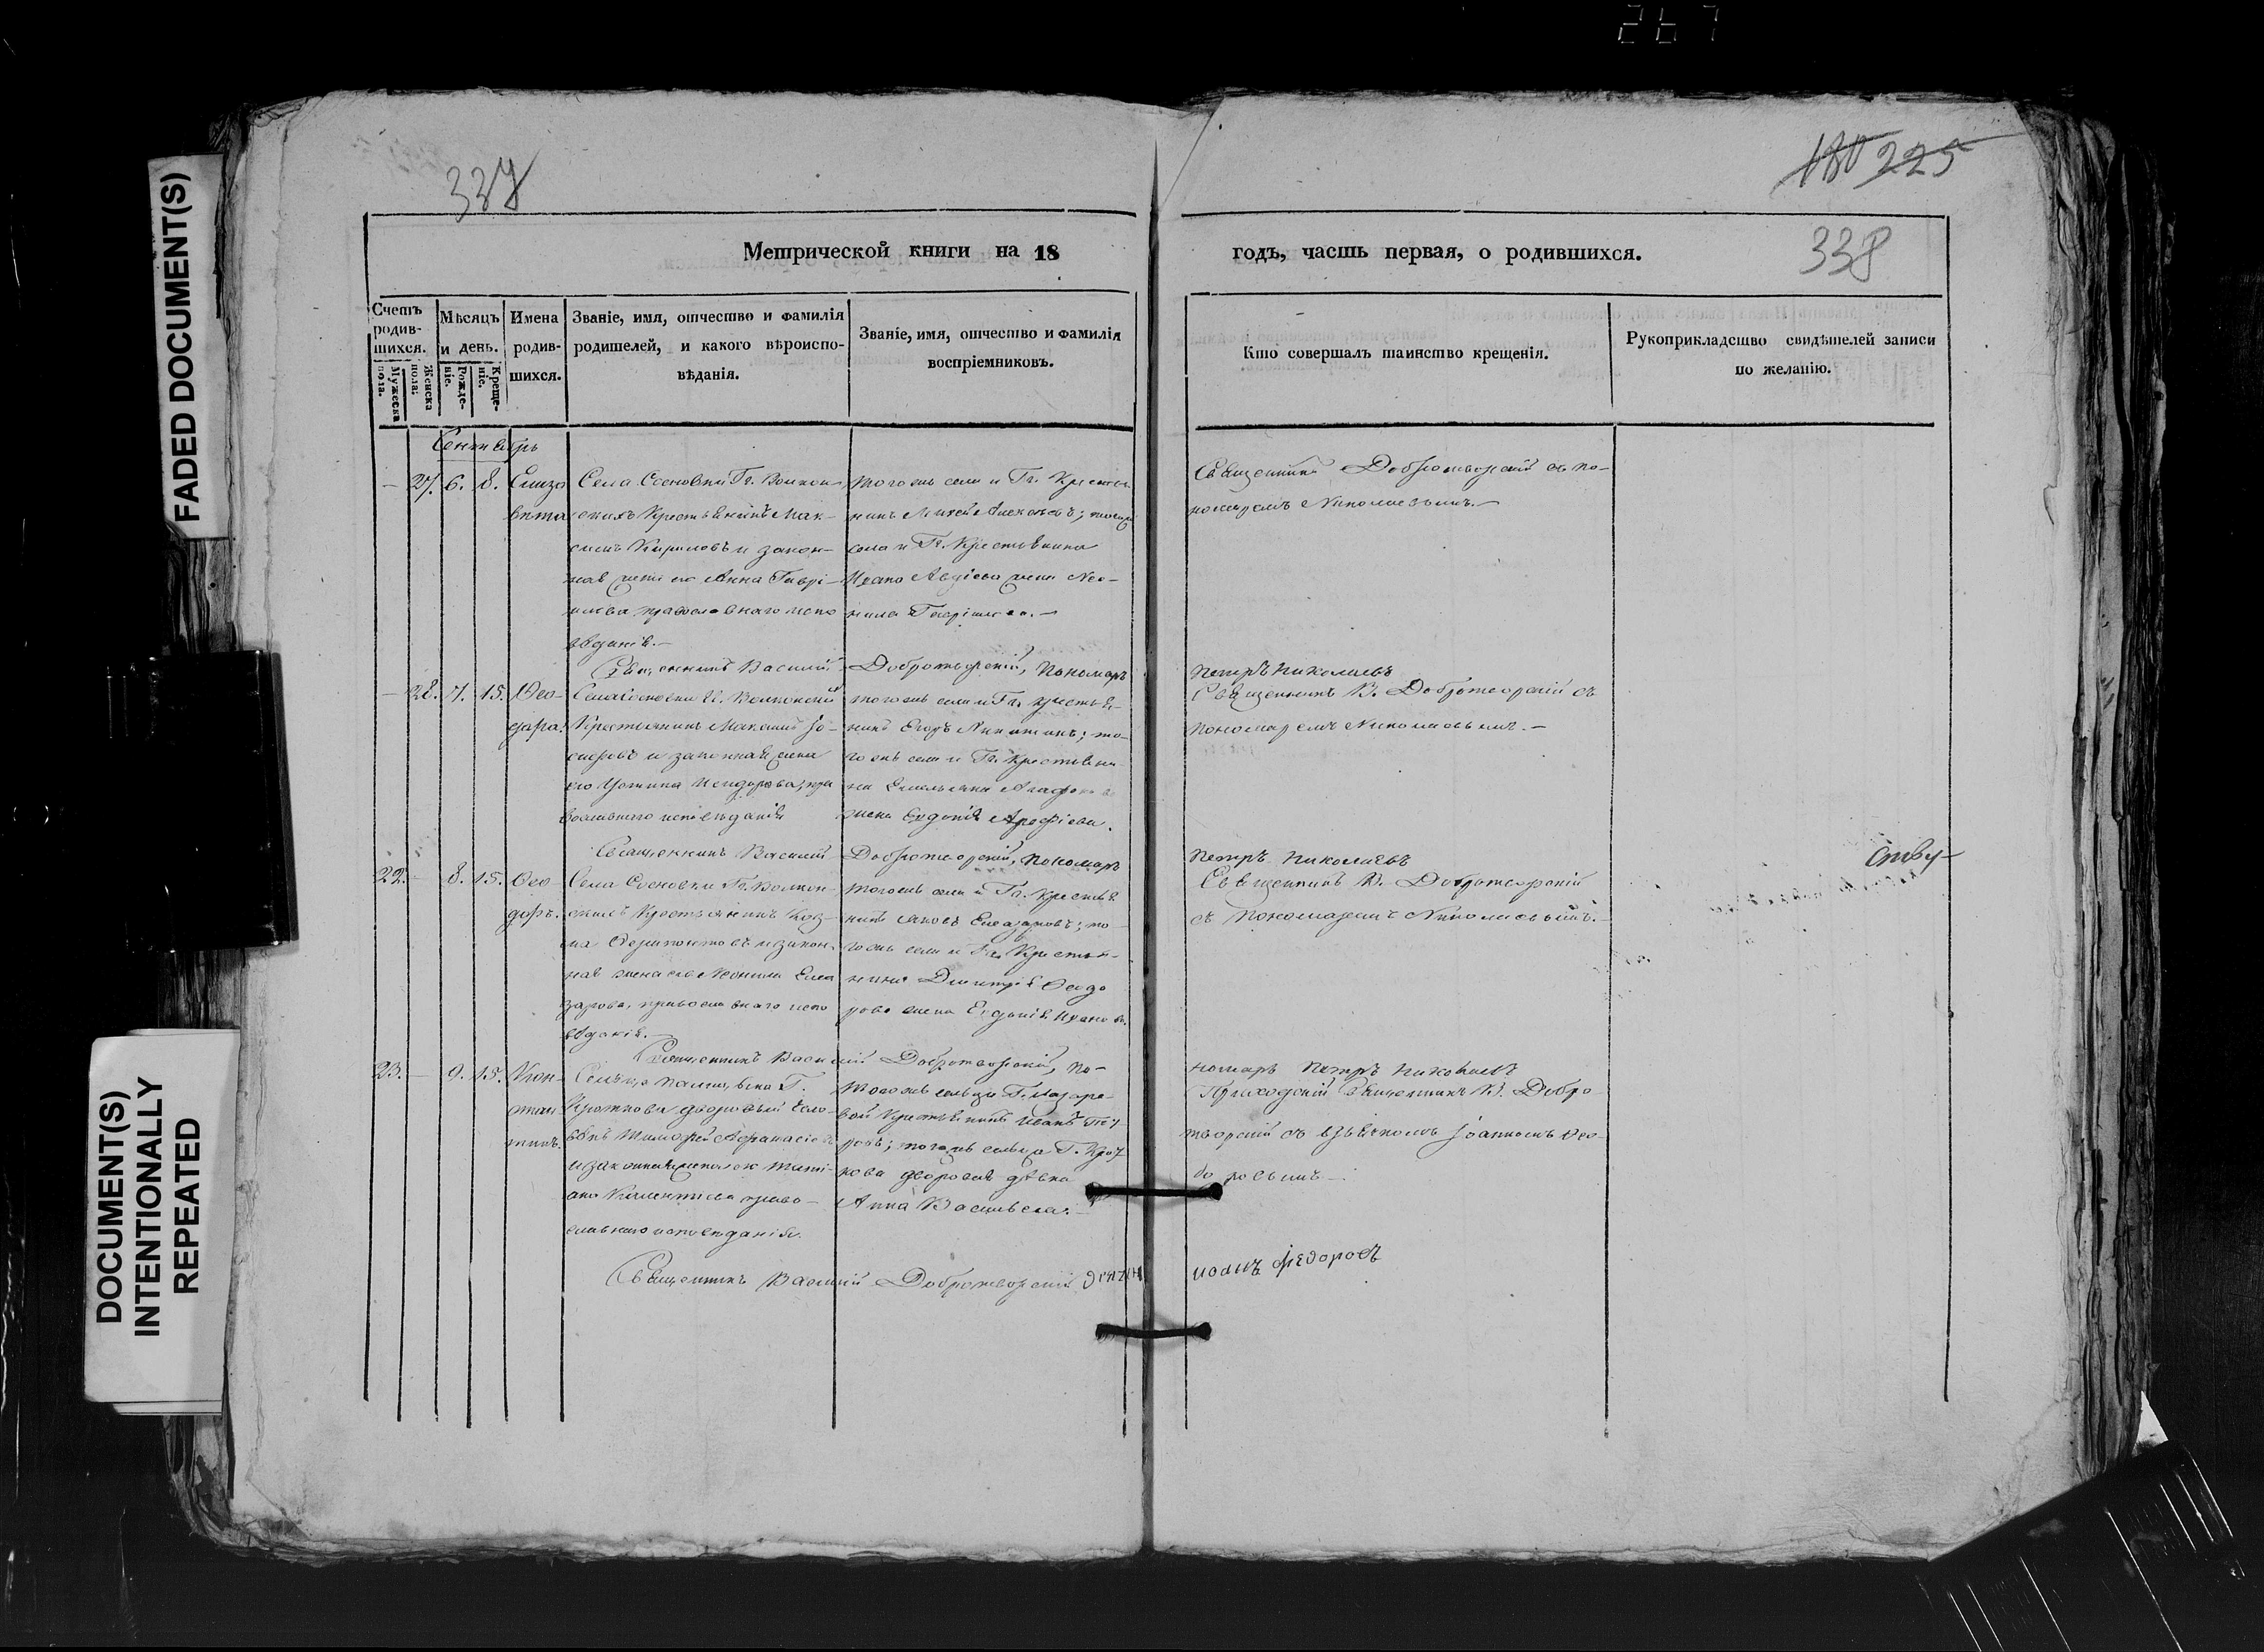 267
FADED DOCUMENT(S)
DOCUMENT(S)
INTENTIONALLY
REPEATED
337
180 225
338
Метрической книги на 18
годъ, часть первая, о родившихся.
Счетъ родив-шихся.
Мужеска пола.
Женска пола.
Мѣсяцъ и день.
Рожде-ніе.
Креще-ніе.
Имена родив-шихся.
Званіе, имя, отчество и фамилія
родителей, и какого вѣроиспо-
вѣданія.
Званіе, имя, отчество и фамилія
воспріемниковъ.
Кто совершалъ таинство крещенія.
Рукоприкладство свидѣтелей записи
по желанію.
Сентябрь
— 27. 6. 8. Елиза
вета
Села Сосновки Гг. Волкон-
скихъ Крестьянинъ Мак-
симъ Кириловъ и закон-
ная жена его Анна Гаврі-
илова, православнаго испо
вѣданія.—
Тогожъ села и Гг. Крестья
нинъ Алексѣевъ; тогожъ
села и Гг. Крестьянина
Ивана Авдіева жена Нео-
нила Гавріилова.—
Священникъ Добротворскій съ по-
номаремъ Николаевымъ.—
Священникъ Василій Добротворскій, Пономарь
Петръ Николаевъ
— 28. 7. 15. Ѳео-
дора.
Села Сосновки Гг. Волконскихъ
Крестьянинъ Максимъ Іо-
сифовъ и законная жена
его Исидорова, пра
вославнаго исповѣданія
Тогожъ села и Гг. крестья-
нинъ Егоръ Никитинъ; то-
гожъ села и Гг. Крестьяни-
на Емельяна Агафонова
жена Евдокія Арефіева.
Священникъ В. Добротворскій съ
Пономаремъ Николаевымъ.—
Священникъ Василій Добротворскій, Пономарь
Петръ Николаевъ
22. — 8. 15. Ѳео-
доръ.
Села Сосновки Гг. Волкон-
скихъ Крестьянинъ Коз-
ма и закон-
ная жена его Неонила Елеа
зарова, православнаго испо
вѣданія.—
Тогожъ села и Гг. Крестья
нинъ Яковъ Елеазаровъ; то-
гожъ села и Гг. Крестья-
нина Димитрія Ѳеодо
рова жена Евдокія Иванова.
Священникъ В. Добротворскій
съ Пономаремъ Николаевымъ.—
ству-
Священникъ Василій Добротворскій, По-
номарь Петръ Николаевъ
23. — 9. 15. Кон-
стан
тинъ.
Сельца Г.
Кроткова дворовый чело-
вѣкъ Тимофей Аѳанасіевъ
и законная жена его Тати-
ана православнаго исповѣданія.
Тогожъ сельца Г. Назаре-
вой Крестьянинъ Иванъ Пет
ровъ; тогожъ сельца Г. Крот
кова дворовая дѣвка
Анна Васильева.—
Приходскій Священникъ В. Добро
творскій съ дьячкомъ Іоанномъ Ѳео-
доровымъ.—
Священникъ Василій Добротворскій дьячек
иоанъ федоровъ